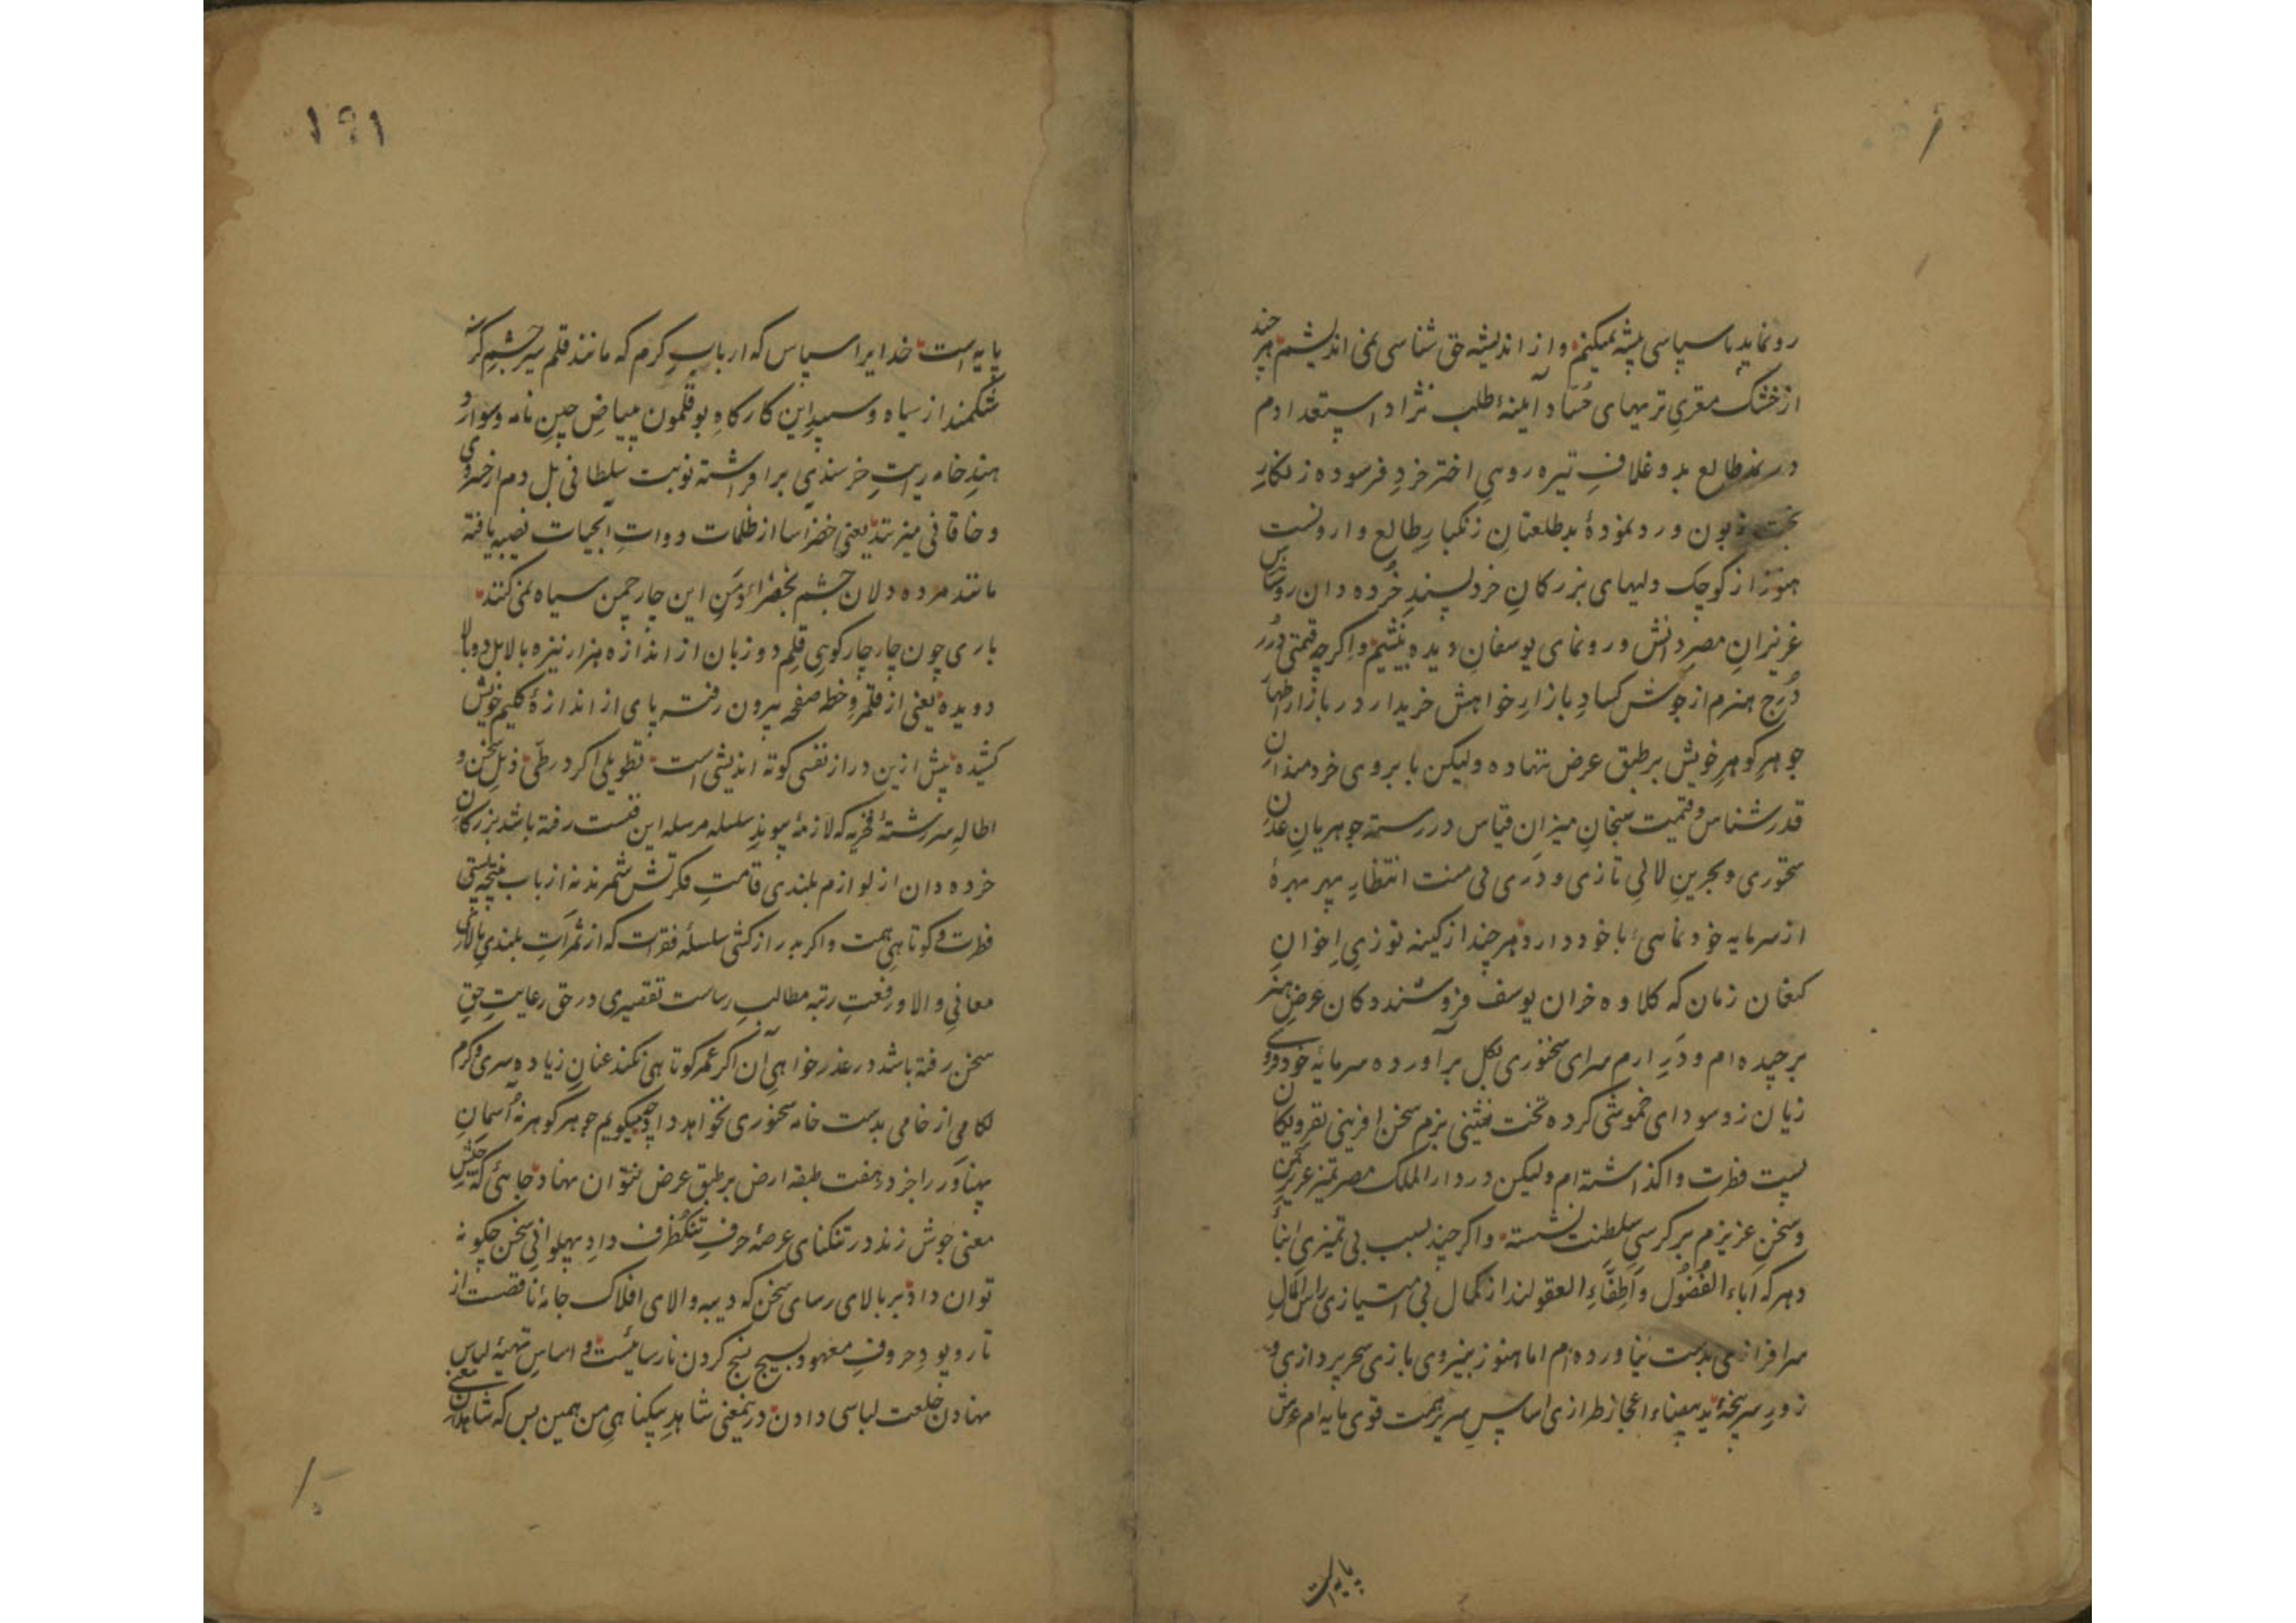 رونماید ناسپاسی پیشه نمیکنم و از اندیشه حق شناسی نمی اندیشم هر چند
از خشک مغزی تریهای حساد آیینهٔ طلب نژاد استعدادم
در نمد طالع بد و غلافِ تیره رویِ اختر خردِ فرسوده زنگارِ
بخت زبون و رد نمودهٔ بد طلعتانِ زنگبارِ طالع وارونست
هنوز از کوچک دلیهای بزرکانِ خرد پسندِ خُرده دان روشناس
عزیزانِ مصرِ دانش و رونمای یوسفانِ دیده بینشیم و اکرچه قیمتی دُرر
دُرجِ هنرم از جوش کسادِ بازارِ خواهش خریدار در بازار اظهار
جوهرِ کوهرِ خویش بر طبق عرض ننهاده ولیکن بابروی خردمندانِ
قدر شناس و قیمت سنجانِ میزانِ قیاس در رسته جوهریانِ عدنِ
سخنوری و بحرینِ لالیِ تازی و دَری بی منت انتظارِ بهر بهرهٔ
از سرمایه خود نماییِ با خود دارد هر چند از کینه توزیِ اِخوانِ
کنعان زمان که کلاوه خران یوسف فروشند دکان عَرضِ هنر
برچیده ام و دَرِ ارم سرای سخنوری بکل برآورده سرمایه خود روی
زیان زد سودای خموشی کرده تخت نشینی بزم سخن افرینی بفرومایکانِ
پست فطرت واکذاشته ام ولیکن در دار الملک مصر تمیز عزیزِ سخن
و سخن عزیزم بر کرسیِ سلطنت نشسته و اکرچند بسبب بی تمیزیِ ابناءِ
دهر که آباء الفُضُول و اَطفاءِ العقولند از کمال بی امتیازی راس المالِ
سرافرازی بدست نیاورده ام اما هنوز بنیروی بازیِ سحر پردازی و
زورِ سرپنجهٔ ید بیضاء اعجاز طرازی اساسِ سریرِ همت قوی مایه ام عرش
پایه است
۱۹۱
پایه است خدایرا سپاس که اربابِ کرم که مانند قلم سیر چشمِ کرسنه
شکمند از سیاه و سپیدِ این کارکاهِ بوقلمون ببیاضِ چینِ نامه و سوادِ
هندِ خامه رایتِ خرسندی برافراشته نوبت سلطانی بل دم از خسروی
و خاقانی میزنند یعنی خضرآسا از ظلمات دواتِ آبحیات نصیبه یافته
مانند مرده دلان چشم بخضراءِ دِمَنِ این چار چمن سیاه نمی کنند
باری چون چار چار کویِ قلمِ دو زبان از اندازه هزار نیزه بالا بل دو بالا
دویده یعنی از قلمروِ خطه صفحه بیرون رفته پای از اندازهٔ کلیم خویش
کشیده بیش ازین دراز نفسی کوته اندیشی است تطویلی اکر در طیّ ذیل سخن و
اطالهِ سررشتهٔ فخریه که لازمهٔ پیوندِ سلسله مرسله این فنست رفته باشد بزرکانِ
خرده دان از لوازم بلندی قامتِ فکرتش شمرند نه از باب نتیجه پستی
فطرت و کوتاهیِ همت و اکر بدرازکشی سلسلهٔ فقرات که از ثمراتِ بلندیِ بالای
معانیِ والا و رفعتِ رتبه مطالبِ رساست تقصیری در حق رعایتِ حقِ
سخن رفته باشد در عذر خواهیِ آن اکر عمر کوتاهی نکند عنان زیاده سری و کرم
لکامی از خامی بدست خامه سخنوری نخواهد داد چه میکویم جوهر کوهر نه آسمانِ
پهناور را جز در هفت طبقه ارض بر طبق عرض نتوان نهاد جاهئی که جیشِ
معنی جوش زند در تنکنای عرصهٔ حرفِ تنکظرف دادِ پهلوانیِ سخن چکونه
توان داد بر بالای رسای سخن که دیبه والای افلاک جامهٔ ناقصست از
تار و پودِ حروفِ معهود بسیج نسج کردن نارسائیست و اساسِ تهیهٔ لباس
نهادن خلعت لباسی دادن درینمعنی شاهدِ بیکناهیِ من همین بس که شاهدانِ معنی